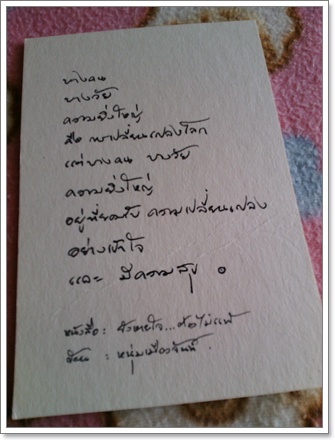 บางคน
บางวัย
ความยิ่งใหญ่
คือ การเปลี่ยนแปลงโลก
แต่บางคน บางวัย
ความยิ่งใหญ่
อยู่ที่ยอมรับ ความเปลี่ยนแปลง
อย่างเข้าใจ
และ มีความสุข ๐
หนังสือ : ยังหายใจ...คือไม่แพ้
เขียน : หนุ่มเมืองจันท์